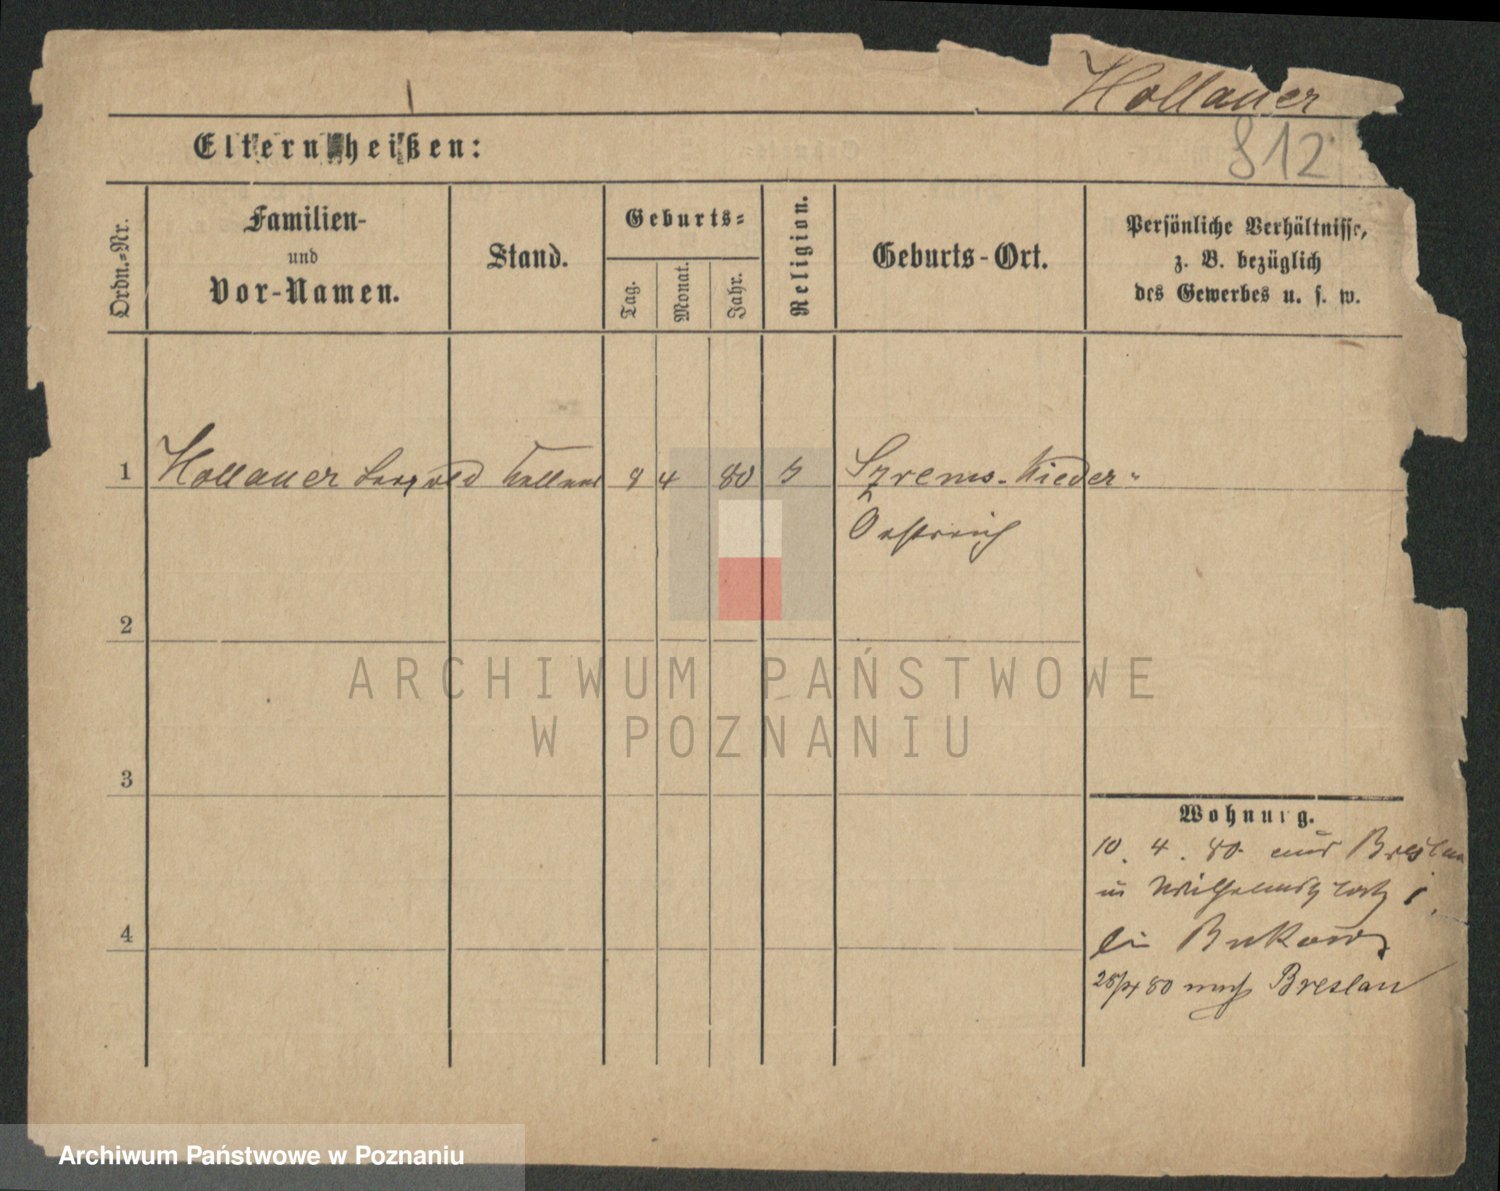 Hollauer
812
Eltern heißen:
Ordn.-Nr.
Familien-
und
Vor-Namen.
Stand.
Geburts-
Tag.
Monat.
Jahr.
Religion.
Geburts-Ort.
Persönliche Verhältnisse,
z. B. bezüglich
des Gewerbes u. s. w.
1 Hollauer Leopold Kellner 8 4 80 Szrems. Nieder-
Oestreich
2
3
4
Wohnung.
10. 4. 80. aus Breslau
in Wilhelmsplatz
bei Bukow
nach Breslau
ARCHIWUM PAŃSTWOWE
W POZNANIU
Archiwum Państwowe w Poznaniu